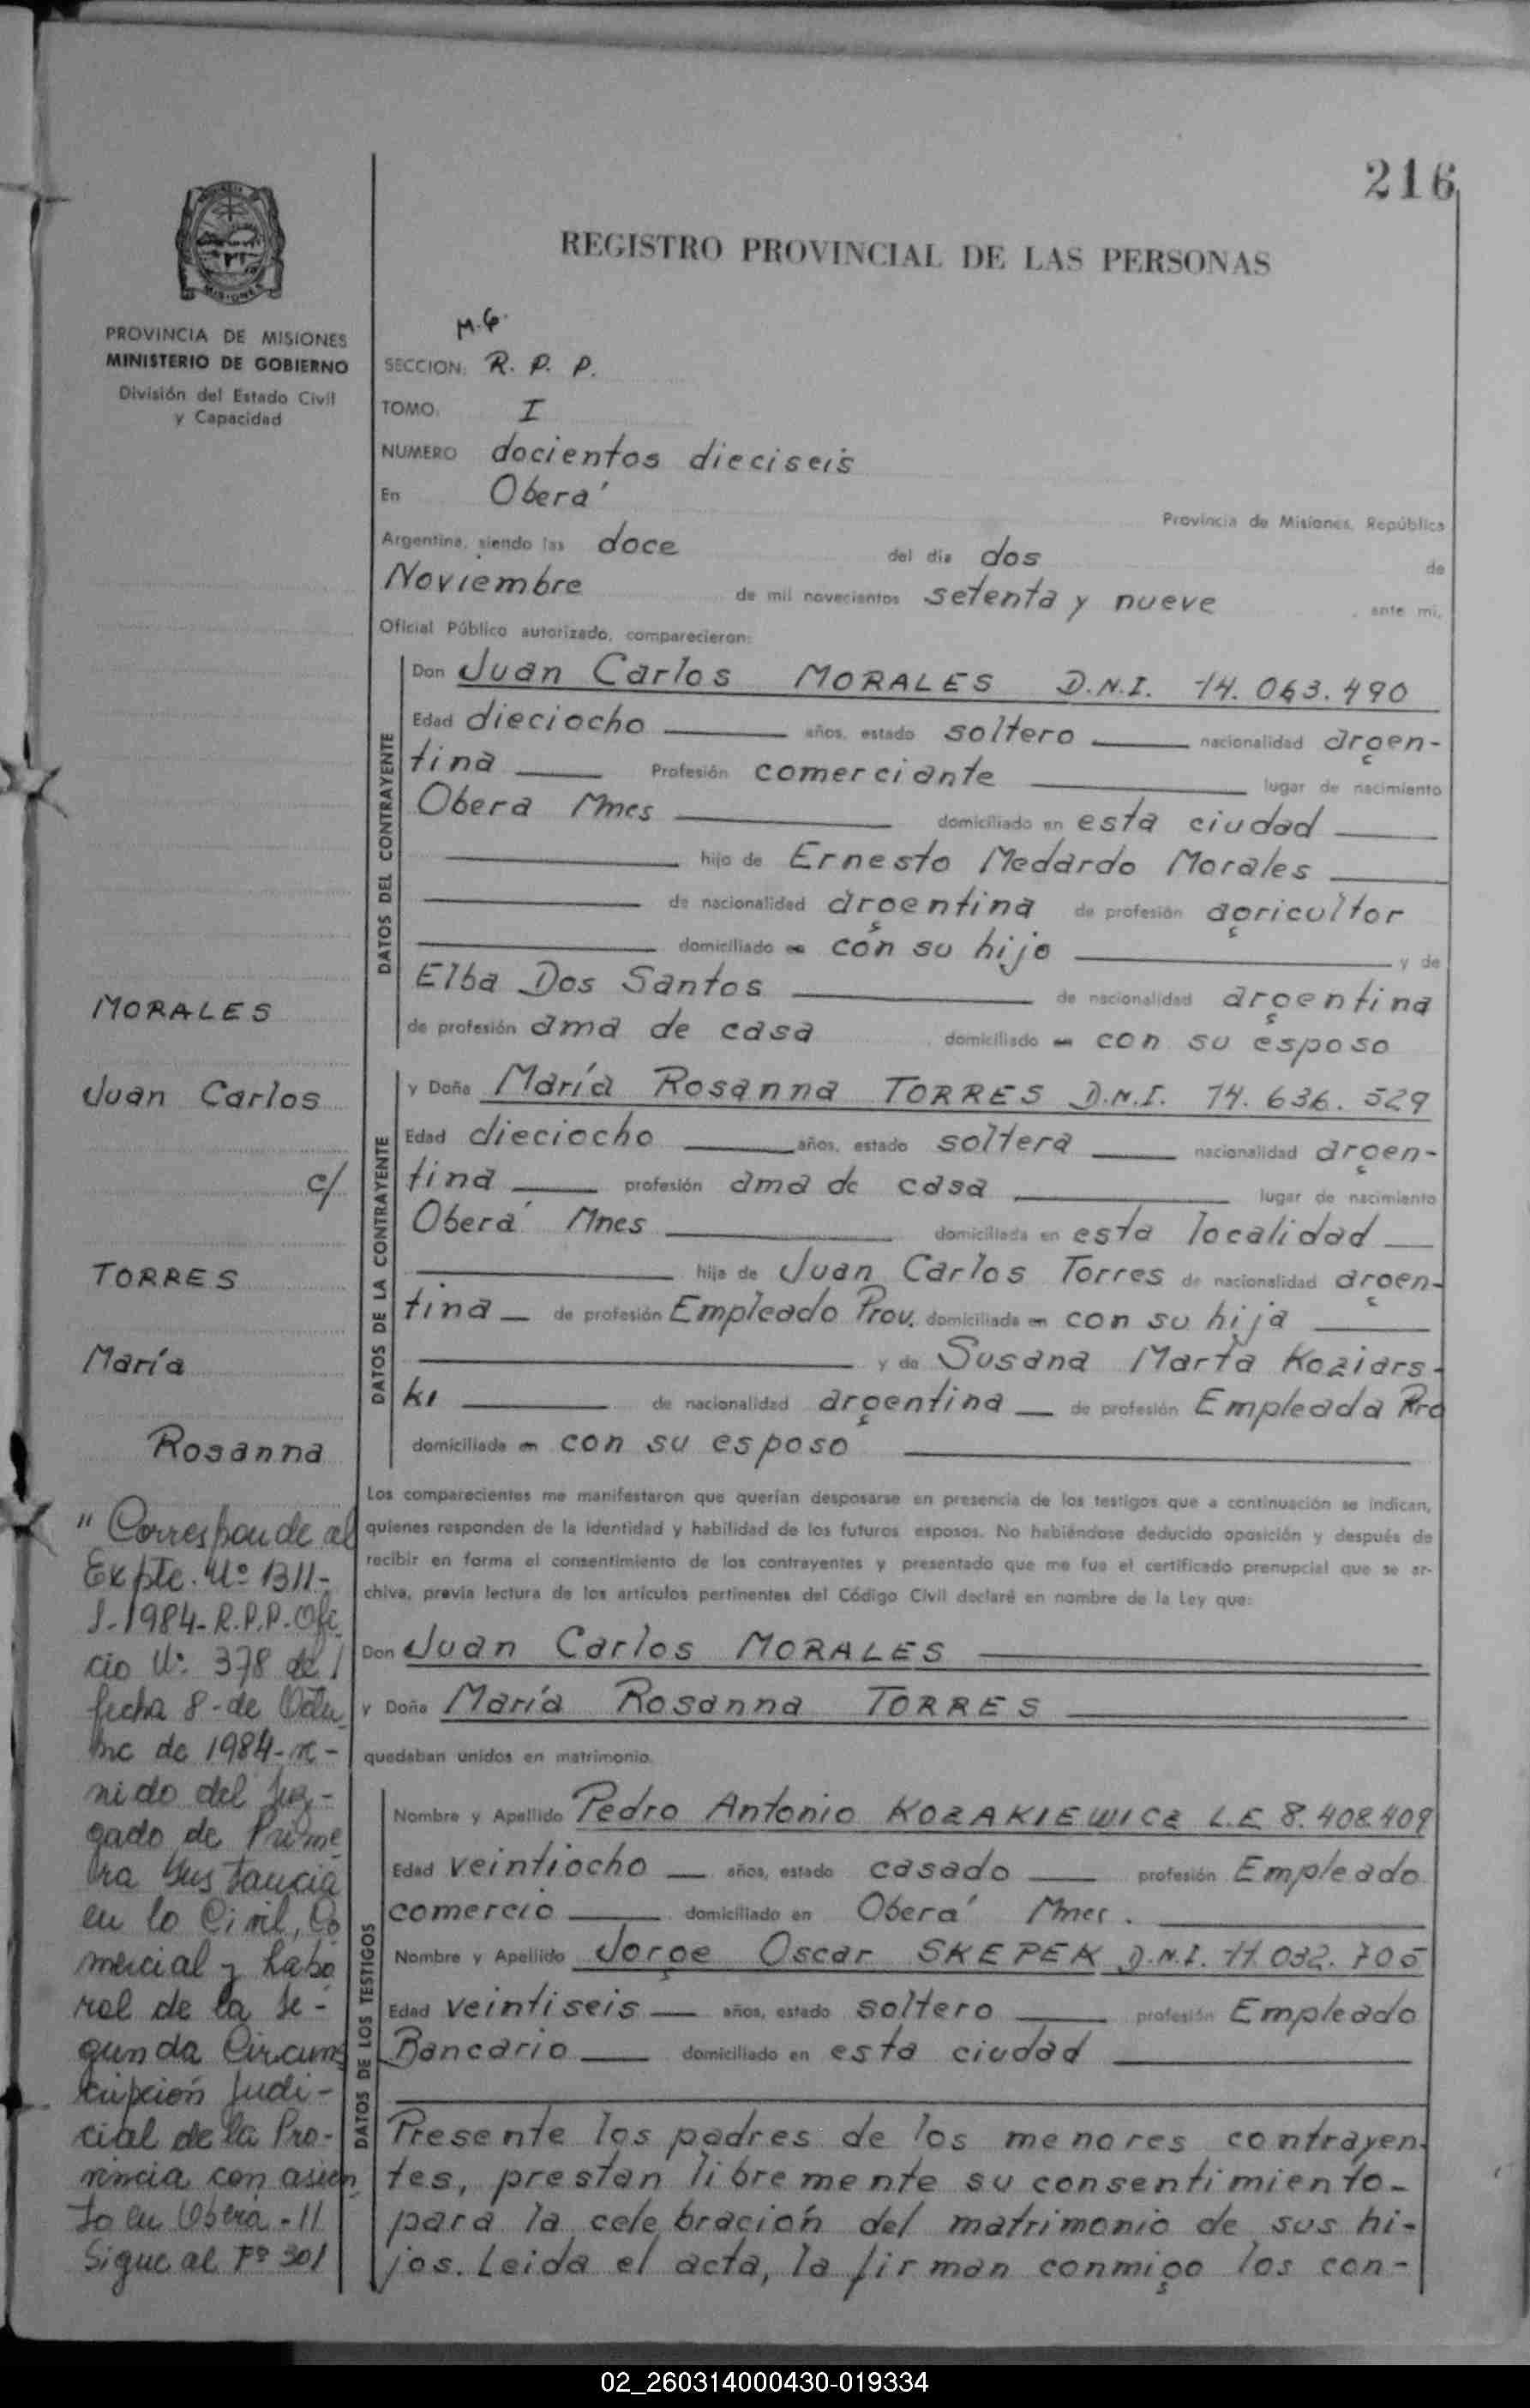 216
REGISTRO PROVINCIAL DE LAS PERSONAS
PROVINCIA DE MISIONES
MINISTERIO DE GOBIERNO
División del Estado Civil
y Capacidad
M.G.
SECCION: R. P. P.
TOMO: I
NUMERO docientos dieciseis
En Oberá
Provincia de Misiones, República
Argentina, siendo las doce del día dos de
Noviembre de mil novecientos setenta y nueve, ante mi,
Oficial Público autorizado, comparecieron:
DATOS DEL CONTRAYENTE
Don Juan Carlos MORALES D.N.I. 14.063.490
Edad dieciocho años, estado soltero nacionalidad argen-
tina Profesión comerciante lugar de nacimiento
Obera Mnes domiciliado en esta ciudad
hijo de Ernesto Medardo Morales
de nacionalidad argentina de profesión agricultor
domiciliado con su hijo y de
Elba Dos Santos de nacionalidad argentina
de profesión ama de casa domiciliado con su esposo
DATOS DE LA CONTRAYENTE
y Doña María Rosanna TORRES D.N.I. 14.636.529
Edad dieciocho años, estado soltera nacionalidad argen-
tina profesión ama de casa lugar de nacimiento
Oberá Mnes domiciliada en esta localidad
hija de Juan Carlos Torres de nacionalidad argen-
tina de profesión Empleado Prov. domiciliada en con su hija
y de Susana Marta Koziars-
ki de nacionalidad argentina de profesión Empleada Pro
domiciliada en con su esposo
Los comparecientes me manifestaron que querían desposarse en presencia de los testigos que a continuación se indican,
quienes responden de la identidad y habilidad de los futuros esposos. No habiéndose deducido oposición y después de
recibir en forma el consentimiento de los contrayentes y presentado que me fue el certificado prenupcial que se ar-
chiva, previa lectura de los artículos pertinentes del Código Civil declaré en nombre de la Ley que:
Don Juan Carlos MORALES
y Doña María Rosanna TORRES
quedaban unidos en matrimonio.
DATOS DE LOS TESTIGOS
Nombre y Apellido Pedro Antonio KOZAKIEWICZ L.E. 8.408.409
Edad veintiocho años, estado casado profesión Empleado
comercio domiciliado en Oberá Mnes.
Nombre y Apellido Jorge Oscar SKEPEK D.N.I. 11.032.705
Edad veintiseis años, estado soltero profesión Empleado
Bancario domiciliado en esta ciudad
Presente los padres de los menores contrayen-
tes, prestan libremente su consentimiento-
para la celebración del matrimonio de sus hi-
jos. Leida el acta, la firman conmigo los con-
MORALES
Juan Carlos
c/
TORRES
María
Rosanna
"Corresponde al
Expte. Nº 1311-
J-1984-R.P.P. Ofi
cio Nº 378 de
fecha 8-de Octu-
bre de 1984-re-
nido del Juz-
gado de Prime
ra Instancia
en lo Civil, Co
mercial y Labo
ral de la Se-
gunda Circuns
cripción Judi-
cial de la Pro-
vincia con asien
to en Oberá-11
Sigue al Fº 301
02_260314000430-019334